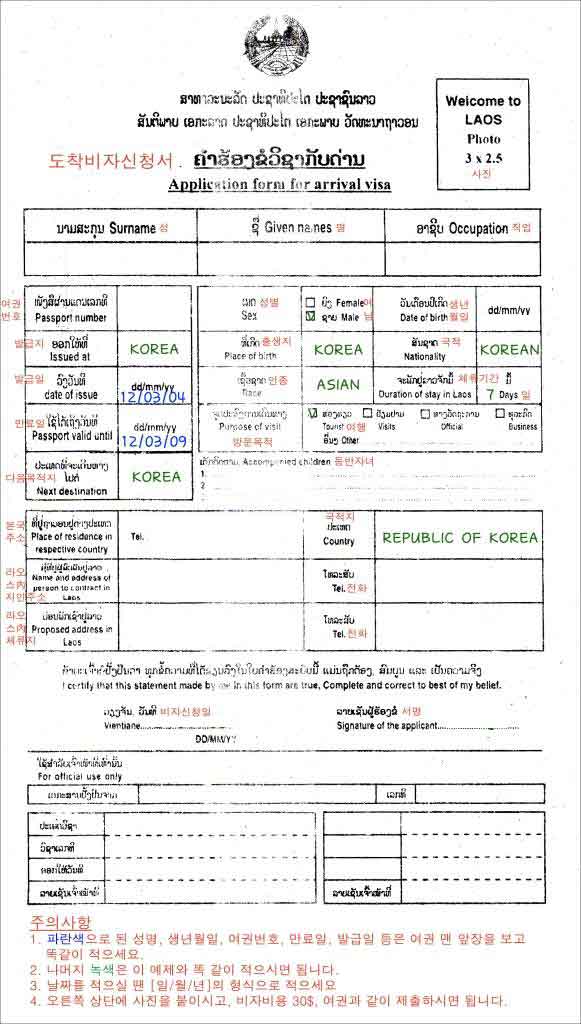 ສາທາລະນະລັດ ປະຊາທິປະໄຕ ປະຊາຊົນລາວ
ສັນຕິພາບ ເອກະລາດ ປະຊາທິປະໄຕ ເອກະພາບ ວັດທະນາຖາວອນ
Welcome to
LAOS
Photo
3 x 2.5
사진
도착비자신청서. ຄຳຮ້ອງຂໍວິຊາກັບດ່ານ
Application form for arrival visa
ນາມສະກຸນ Surname 성
ຊື່ Given names 명
ອາຊີບ Occupation 직업
여권 번호
ໜັງສືຜ່ານແດນເລກທີ
Passport number
ເພດ 성별
Sex
☐ ຍິງ Female 여
☑ ຊາຍ Male 남
ວັນເດືອນປີເກີດ 생년
Date of birth 월일
dd/mm/yy
발급지
ອອກໃຫ້ທີ່
Issued at
KOREA
ທີ່ເກີດ 출생지
Place of birth
KOREA
ສັນຊາດ 국적
Nationality
KOREAN
발급일
ລົງວັນທີ
date of issue
dd/mm/yy
12/03/04
ເຊື້ອຊາດ 인종
Race
ASIAN
체류기간 ມື້
Duration of stay in Laos
7 Days 일
만료일
ໃຊ້ໄດ້ເຖິງວັນທີ
Passport valid until
dd/mm/yy
12/03/09
Purpose of visit
방문목적
☑ ທ່ອງທ່ຽວ
Tourist 여행
☐ ຢ້ຽມຢາມ
Visits
☐ ທາງລັດຖະການ
Official
☐ ທຸລະກິດ
Business
ອື່ນໆ Other
다음목적지
ປະເທດທີ່ຈະເດີນທາງ
ໄປຕໍ່
Next destination
KOREA
Accompanied children 동반자녀
1.
2.
본국 주소
Place of residence in
respective country
Tel.
국적지
ປະເທດ
Country
REPUBLIC OF KOREA
라오스內 지인주소
Name and address of
person to contract in
Laos
ໂທລະສັບ
Tel. 전화
라오스內 체류지
Proposed address in
Laos
ໂທລະສັບ
Tel. 전화
I certify that this statement made by me in this form are true, Complete and correct to best of my belief.
ວຽງຈັນ, ວັນທີ 비자신청일
Vientiane
DD/MM/YY
ລາຍເຊັນຜູ້ຮ້ອງຂໍ 서명
Signature of the applicant
ໃຊ້ສຳລັບເຈົ້າໜ້າທີ່ເທົ່ານັ້ນ
For official use only
ເລກທີ
ປະເພດວິຊາ
ວິຊາເລກທີ
ອອກໃຫ້ວັນທີ
ລາຍເຊັນເຈົ້າໜ້າທີ່
ລາຍເຊັນເຈົ້າໜ້າທີ່
주의사항
1. 파란색으로 된 성명, 생년월일, 여권번호, 만료일, 발급일 등은 여권 맨 앞장을 보고
똑같이 적으세요.
2. 나머지 녹색은 이 예제와 똑 같이 적으시면 됩니다.
3. 날짜를 적으실 땐 [일/월/년]의 형식으로 적으세요
4. 오른쪽 상단에 사진을 붙이시고, 비자비용 30$, 여권과 같이 제출하시면 됩니다.